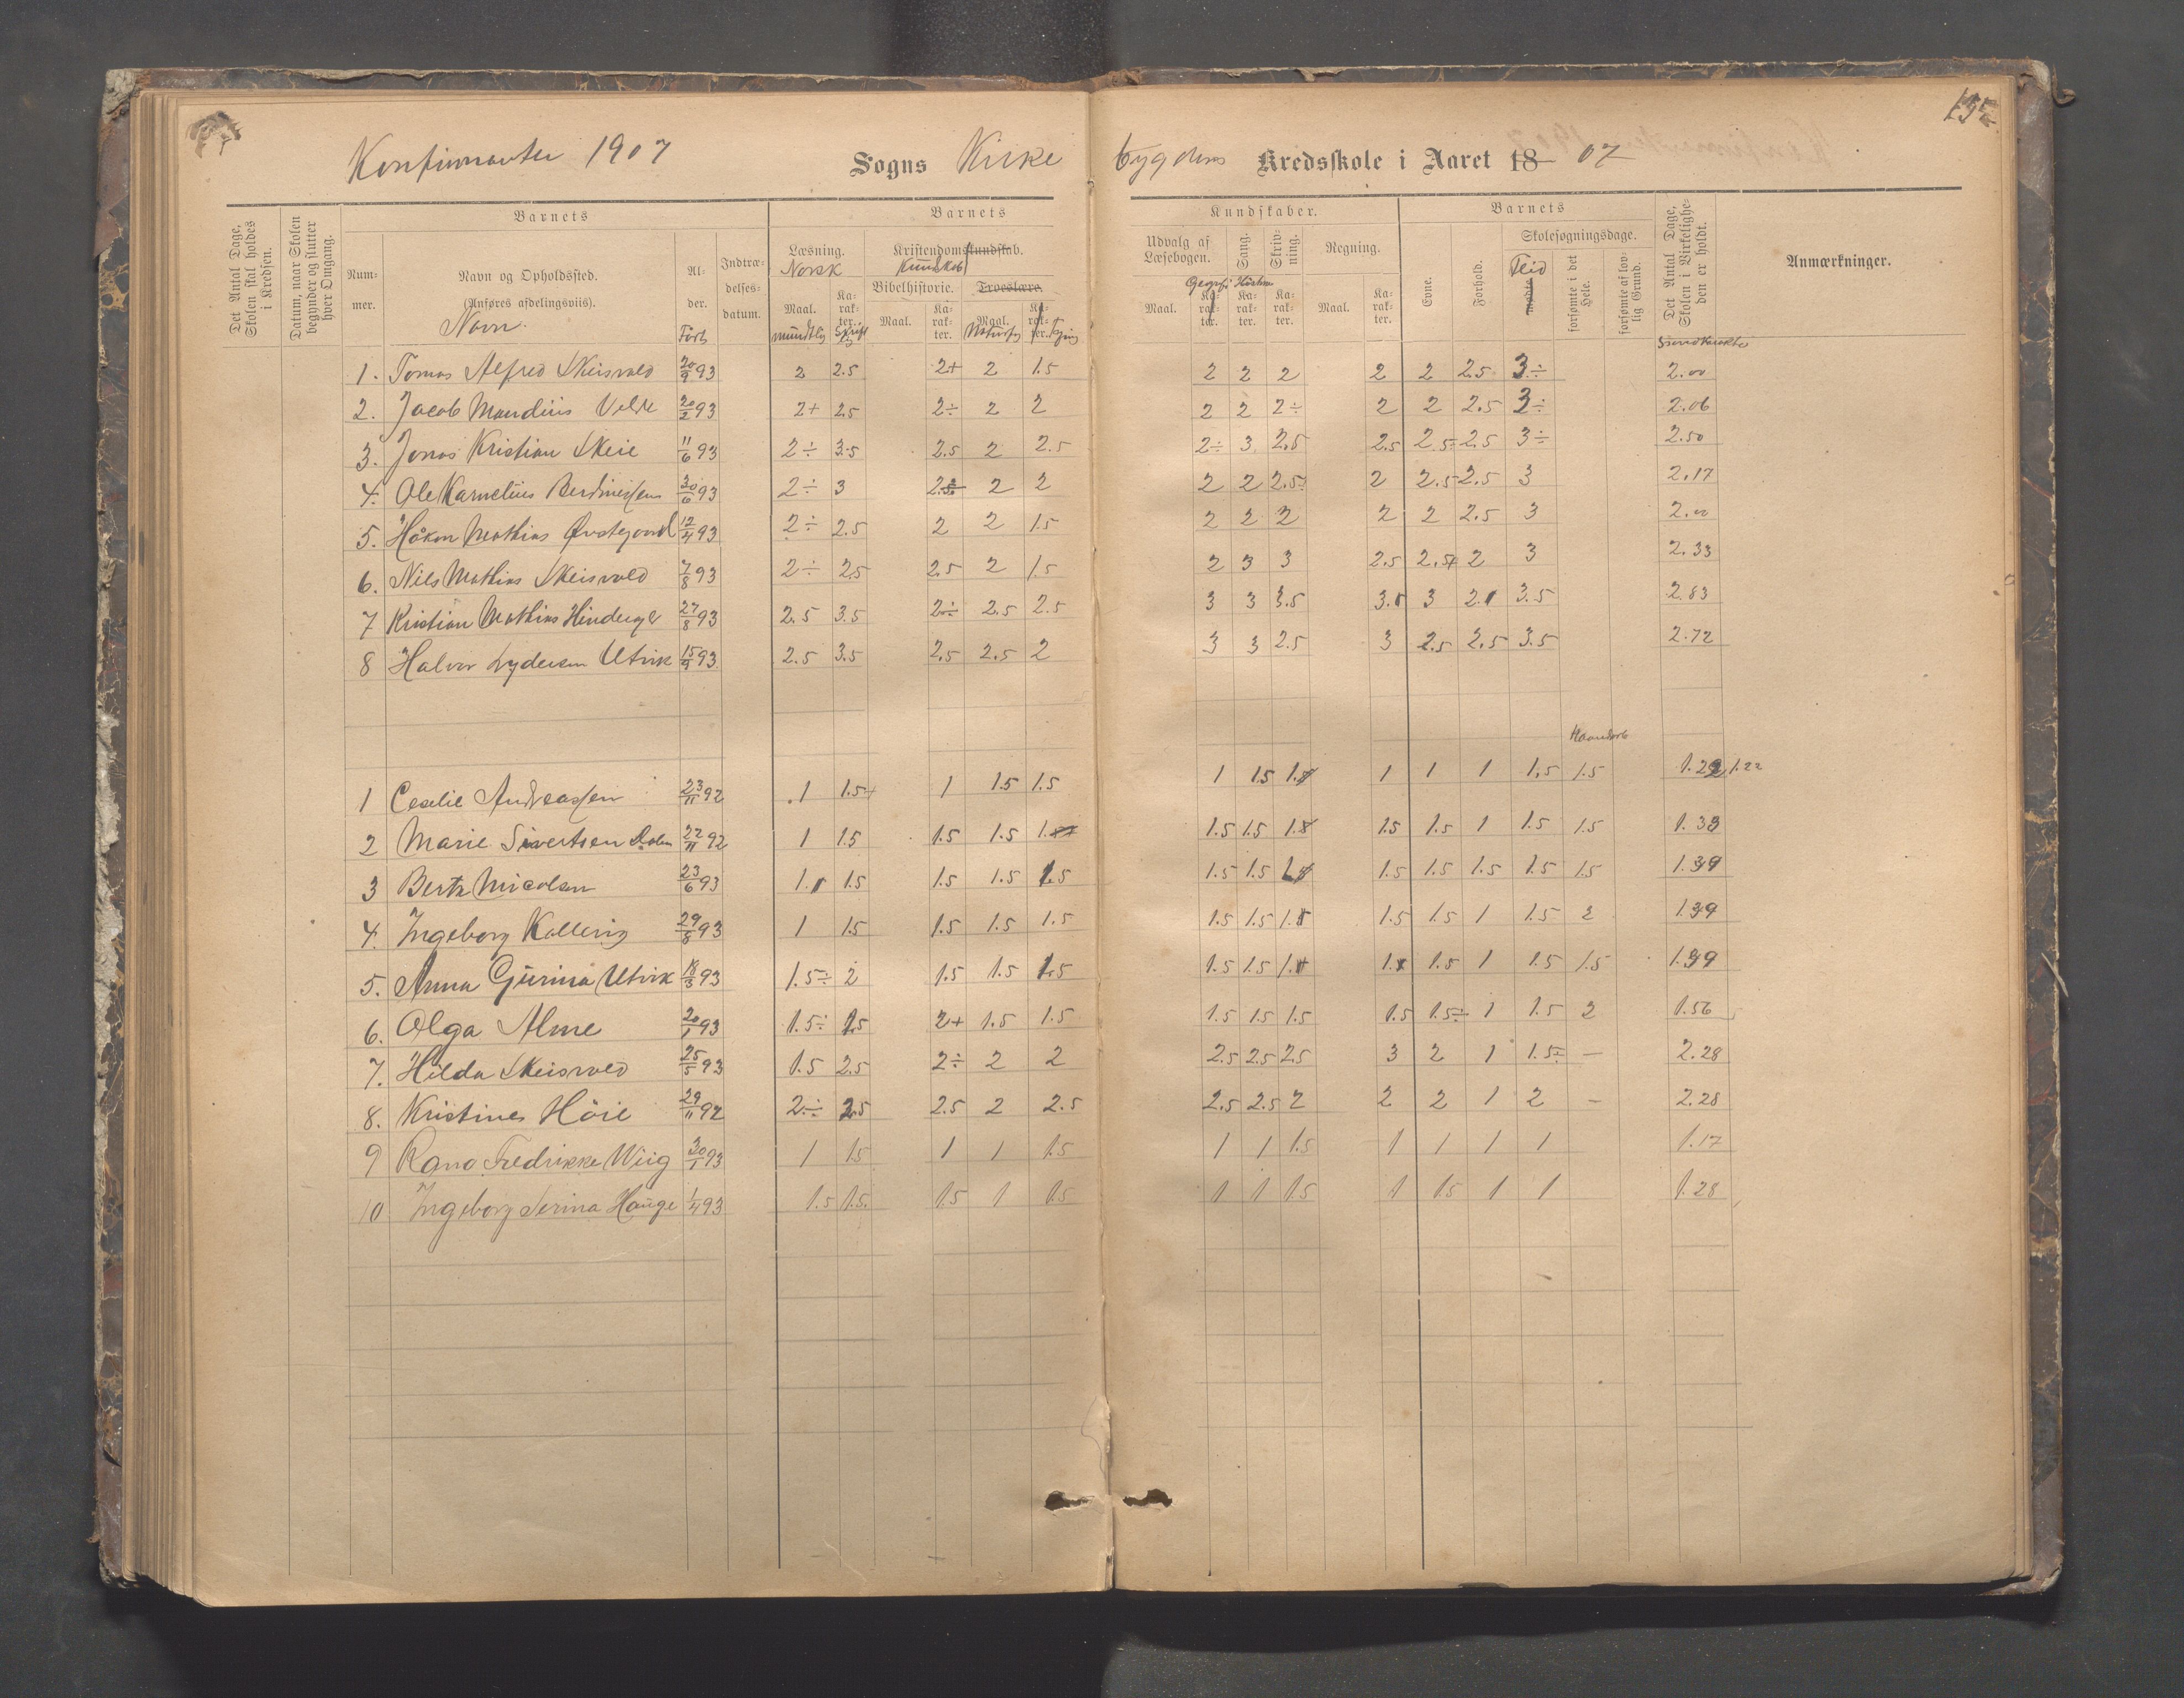 Konfirmanter 1907 Sogns Kirke bygdens Kredsskole i Aaret 18 07
135
Det Antal Dage, Skolen skal holdes i Kredsen.
Datum, naar Skolen begynder og slutter hver Omgang.
Barnets
Nummer.
Navn og Opholdssted.
(Anføres afdelingsviis).
Navn.
Alder.
Født
Indtrædelsesdatum.
Barnets
Læsning.
Norsk
Maal. Karakter.
mundtlig Skriftl
Kristendomskundskab.
Kundskab
Bibelhistorie. Troeslære.
Maal. Karakter. Maal. Karakter.
Kundskaber.
Udvalg af Læsebogen.
Sang.
Skrivning.
Regning.
Geografi Historie
Maal. Karakter. Karakter. Karakter. Maal. Karakter.
Barnets
Evne.
Forhold.
Skolesøgningsdage.
mødte
Flid
forsømte i det Hele.
forsømte af lovlig Grund.
Det Antal Dage, Skolen i Virkeligheden er holdt.
Anmærkninger.
1. Tomas Alfred Skeisvold 20/9 93 2 2.5 2+ 2 1.5 2 2 2 2 2 2.5 3÷ 2.00
2. Jacob Mandius Velde 20/2 93 2+ 2.5 2÷ 2 2 2 2 2÷ 2 2 2.5 3÷ 2.06
3. Jonas Kristian Skeie 11/6 93 2÷ 3.5 2.5 2 2.5 2÷ 3 2.5 2.5 2.5÷ 2.5 3÷ 2.50
4. Ole Kornelius 30/6 93 2÷ 3 2 2 2 2 2.5 2 2.5 2.5 3 2.17
5. Håkon Mathias 12/4 93 2÷ 2.5 2 2 1.5 2 2 2 2 2 2.5 3 2.00
6. Nils Mathias Skeisvold 7/8 93 2÷ 2.5 2.5 2 1.5 2 3 3 2.5 2.5+ 2 3 2.33
7 Kristian Mathias 27/8 93 2.5 3.5 2÷ 2.5 2.5 3 3 3.5 3. 3 2. 3.5 2.83
8 Halvor Lydersen Utvik 15/9 93 2.5 3.5 2.5 2.5 2 3 3 2.5 3 2.5 2.5 3.5 2.72
Haandarb
1 Ceselie Andreassen 23/11 92 1 1.5+ 1 1.5 1.5 1 1.5 1. 1 1 1 1.5 1.5 1.22
2 Marie Sivertsen 22/11 92 1 1.5 1.5 1.5 1.5 1.5 1. 1.5 1.5 1 1.5 1.5 1.33
3 Berta Nicolsen 23/6 93 1. 1.5 1.5 1.5 1.5 1.5 1.5 1. 1.5 1.5 1.5 1.5 1.5 1.39
4. Ingeborg Kallevig 29/8 93 1 1.5 1.5 1.5 1.5 1.5 1.5 1. 1.5 1.5 1 1.5 2 1.39
5. Anna Gurina Utvik 18/3 93 1.5÷ 2 1.5 1.5 1.5 1.5 1.5 1. 1. 1.5 1 1.5 1.5 1.39
6. Olga Alme 20/1 93 1.5÷ 1.5 2+ 1.5 1.5 1.5 1.5 1.5 1.5 1.5÷ 1 1.5 2 1.56
7. Hilda Skeisvold 25/5 93 1.5 2.5 2÷ 2 2 2.5 2.5 2.5 3 2 1 1.5÷ — 2.28
8. Kristines Höie 29/11 92 2÷ 2.5 2.5 2 2.5 2.5 2.5 2 2 2 1 2 — 2.28
9 Fredrikke Wiig 30/1 93 1 1.5 1 1 1.5 1 1 1.5 1 1 1 1 1.17
10 Ingeborg Serina Hauge 1/4 93 1.5 1.5 1.5 1 1.5 1 1 1.5 1 1.5 1 1 1.28